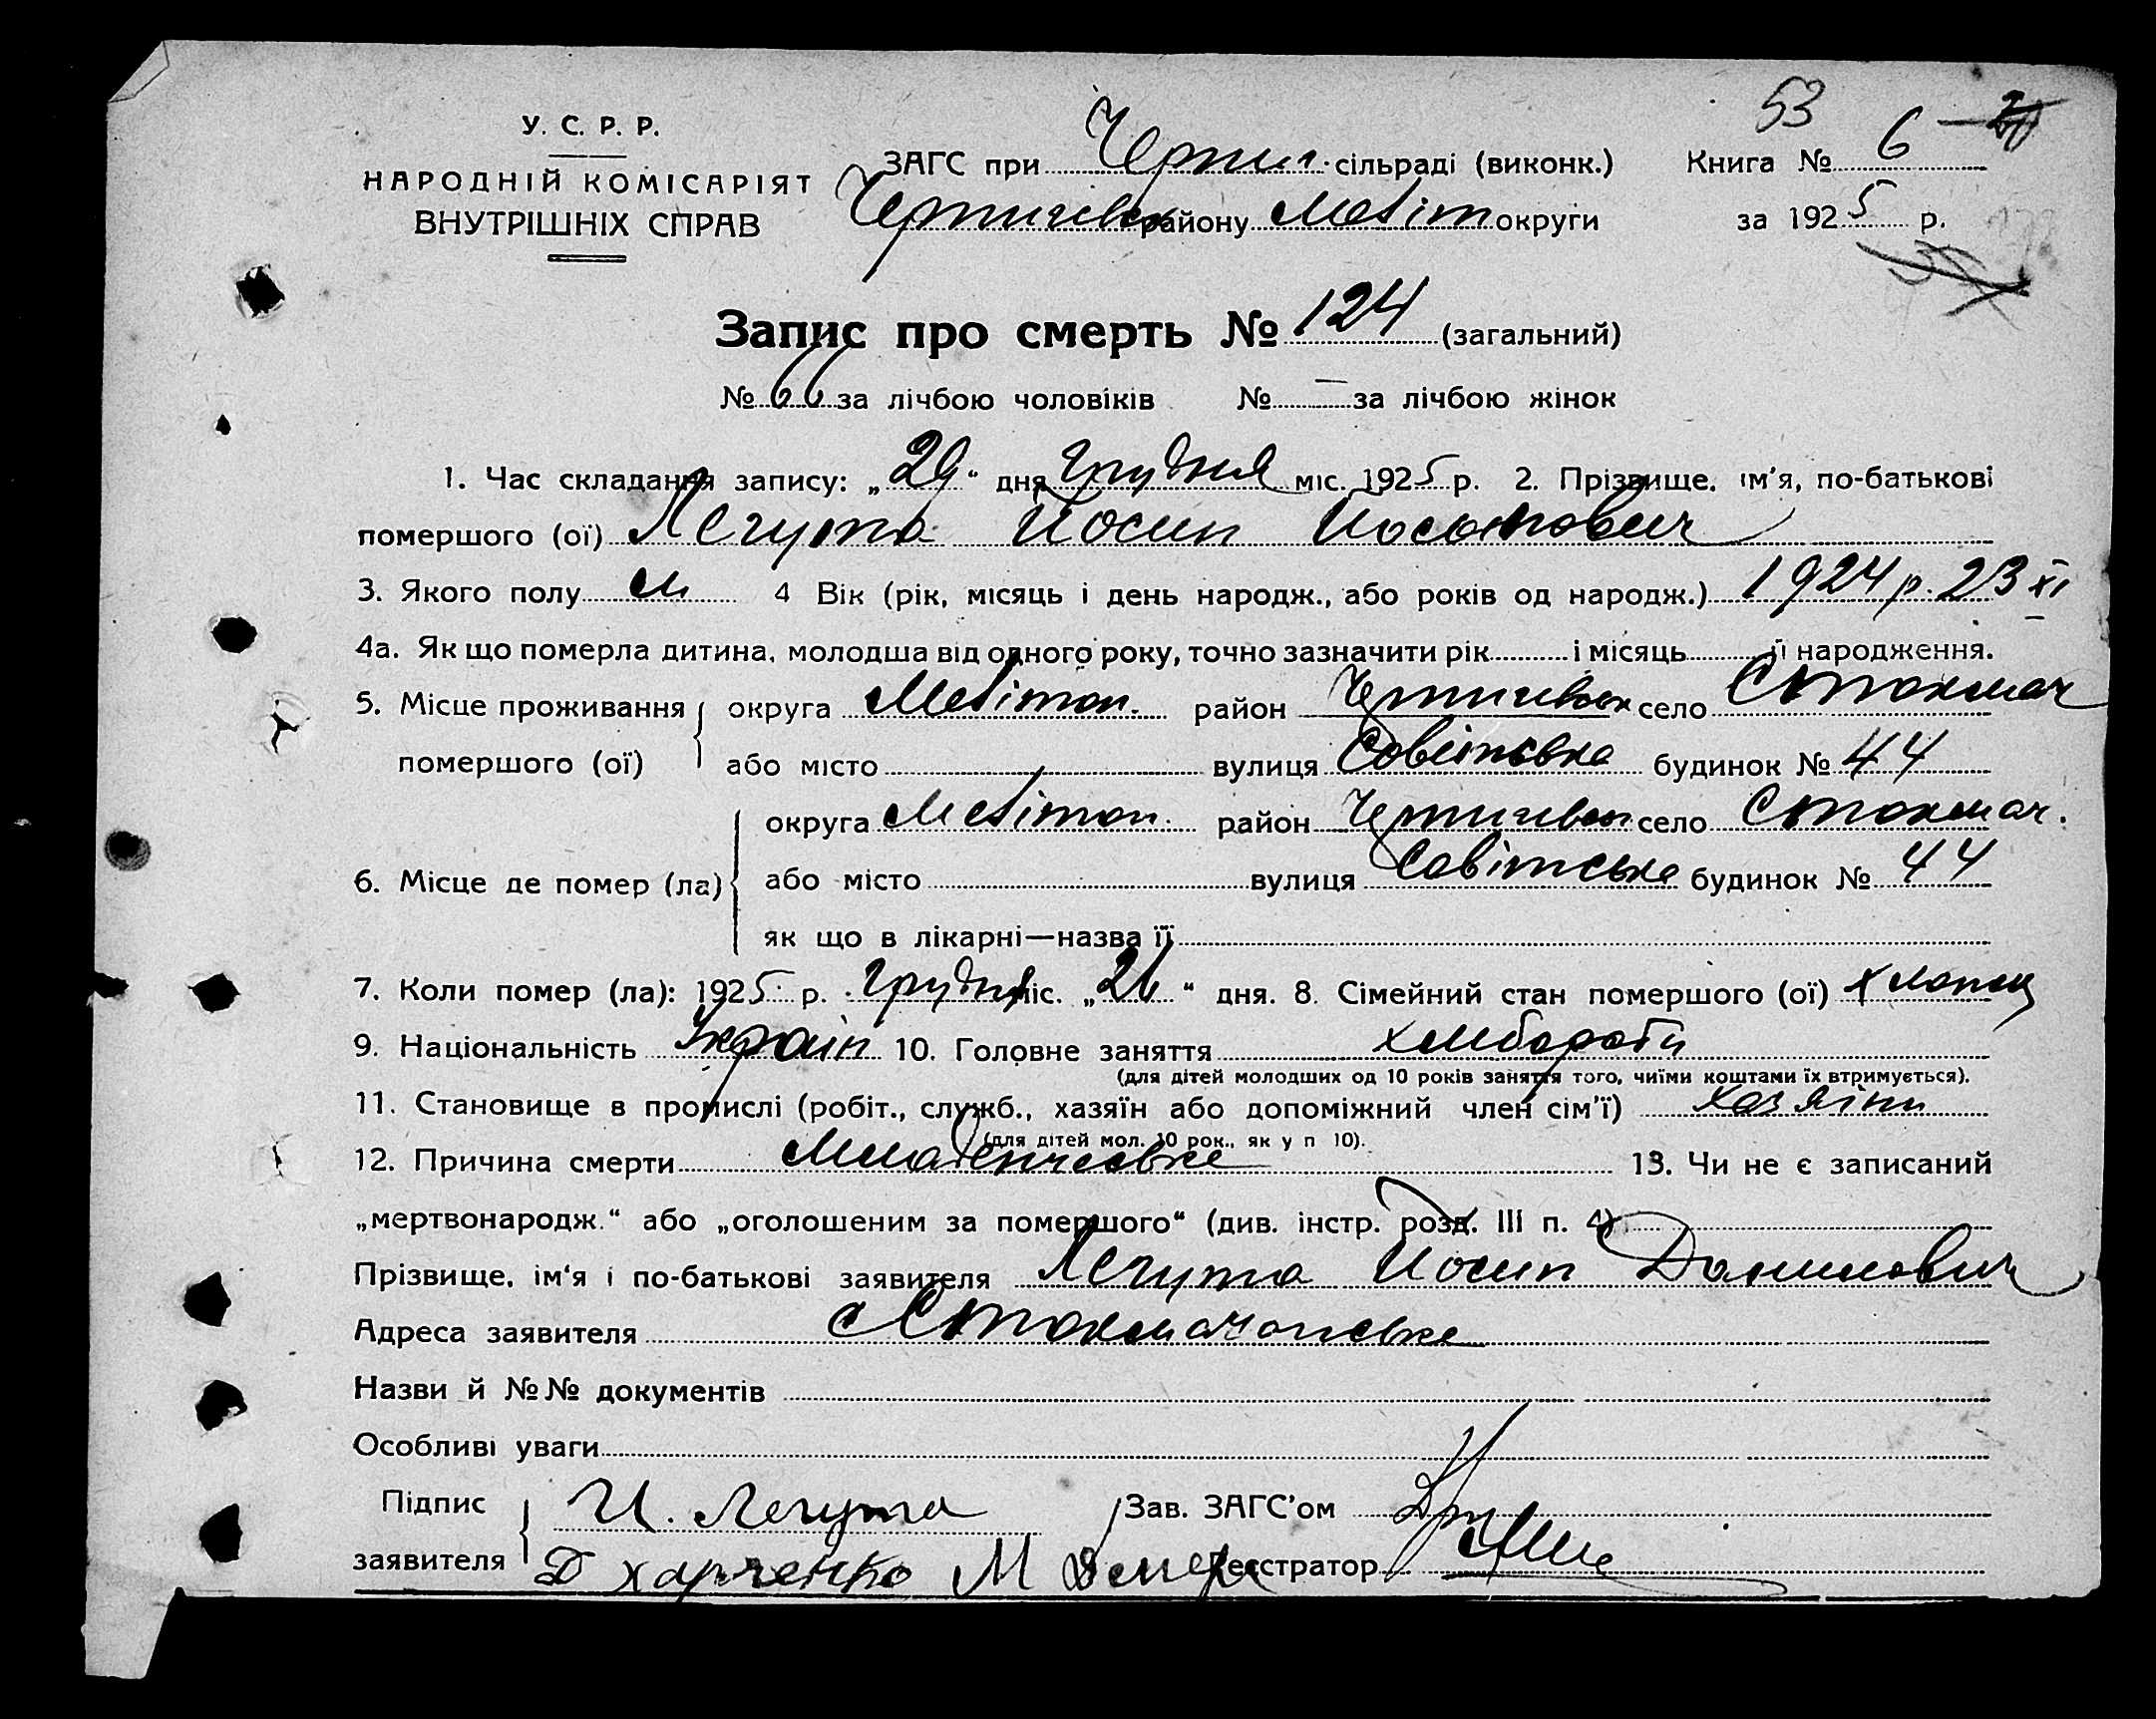 53
У. С. Р. Р.
НАРОДНІЙ КОМІСАРІЯТ
ВНУТРІШНІХ СПРАВ
ЗАГС при Черниг. сільраді (виконк.) Книга № 6
Чернигівск району Меліт округи за 1925 р.
Запис про смерть № 124 (загальний)
№ 66 за лічбою чоловіків № — за лічбою жінок
1. Час складання запису: „29“ дня грудня міс. 1925 р. 2. Прізвище, ім'я, по-батькові
помершого (ої) Легута Йосип Йосипович
3. Якого полу м 4 Вік (рік, місяць і день народж., або років од народж.) 1924 р. 23 XI
4а. Як що померла дитина, молодша від одного року, точно зазначити рік і місяць її народження.
5. Місце проживання округа Мелітоп. район Чернигівск село Стокмач
помершого (ої) або місто вулиця Совітська будинок № 44
округа Мелітоп. район Чернигівск село Стокмач.
6. Місце де помер (ла) або місто вулиця Совітська будинок № 44
як що в лікарні—назва її
7. Коли помер (ла): 1925 р. грудня міс. „26“ дня. 8. Сімейний стан помершого (ої) хлопец
9. Національність Україн 10. Головне заняття хлібороби
(для дітей молодших од 10 років заняття того, чиїми коштами їх втримується).
11. Становище в промислі (робіт., служб., хазяїн або допоміжний член сім'ї) хазяїни
(для дітей мол. 10 рок., як у п 10).
12. Причина смерти Младенческе 13. Чи не є записаний
„мертвонародж.“ або „оголошеним за померлого“ (див. інстр. розд. III п. 4)
Прізвище, ім'я і по-батькові заявителя Легута Йосип Данилович
Адреса заявителя с Стокмачанське
Назви й №№ документів
Особливі уваги
Підпис И. Легута Зав. ЗАГС'ом
заявителя Д Харченко М Реєстратор